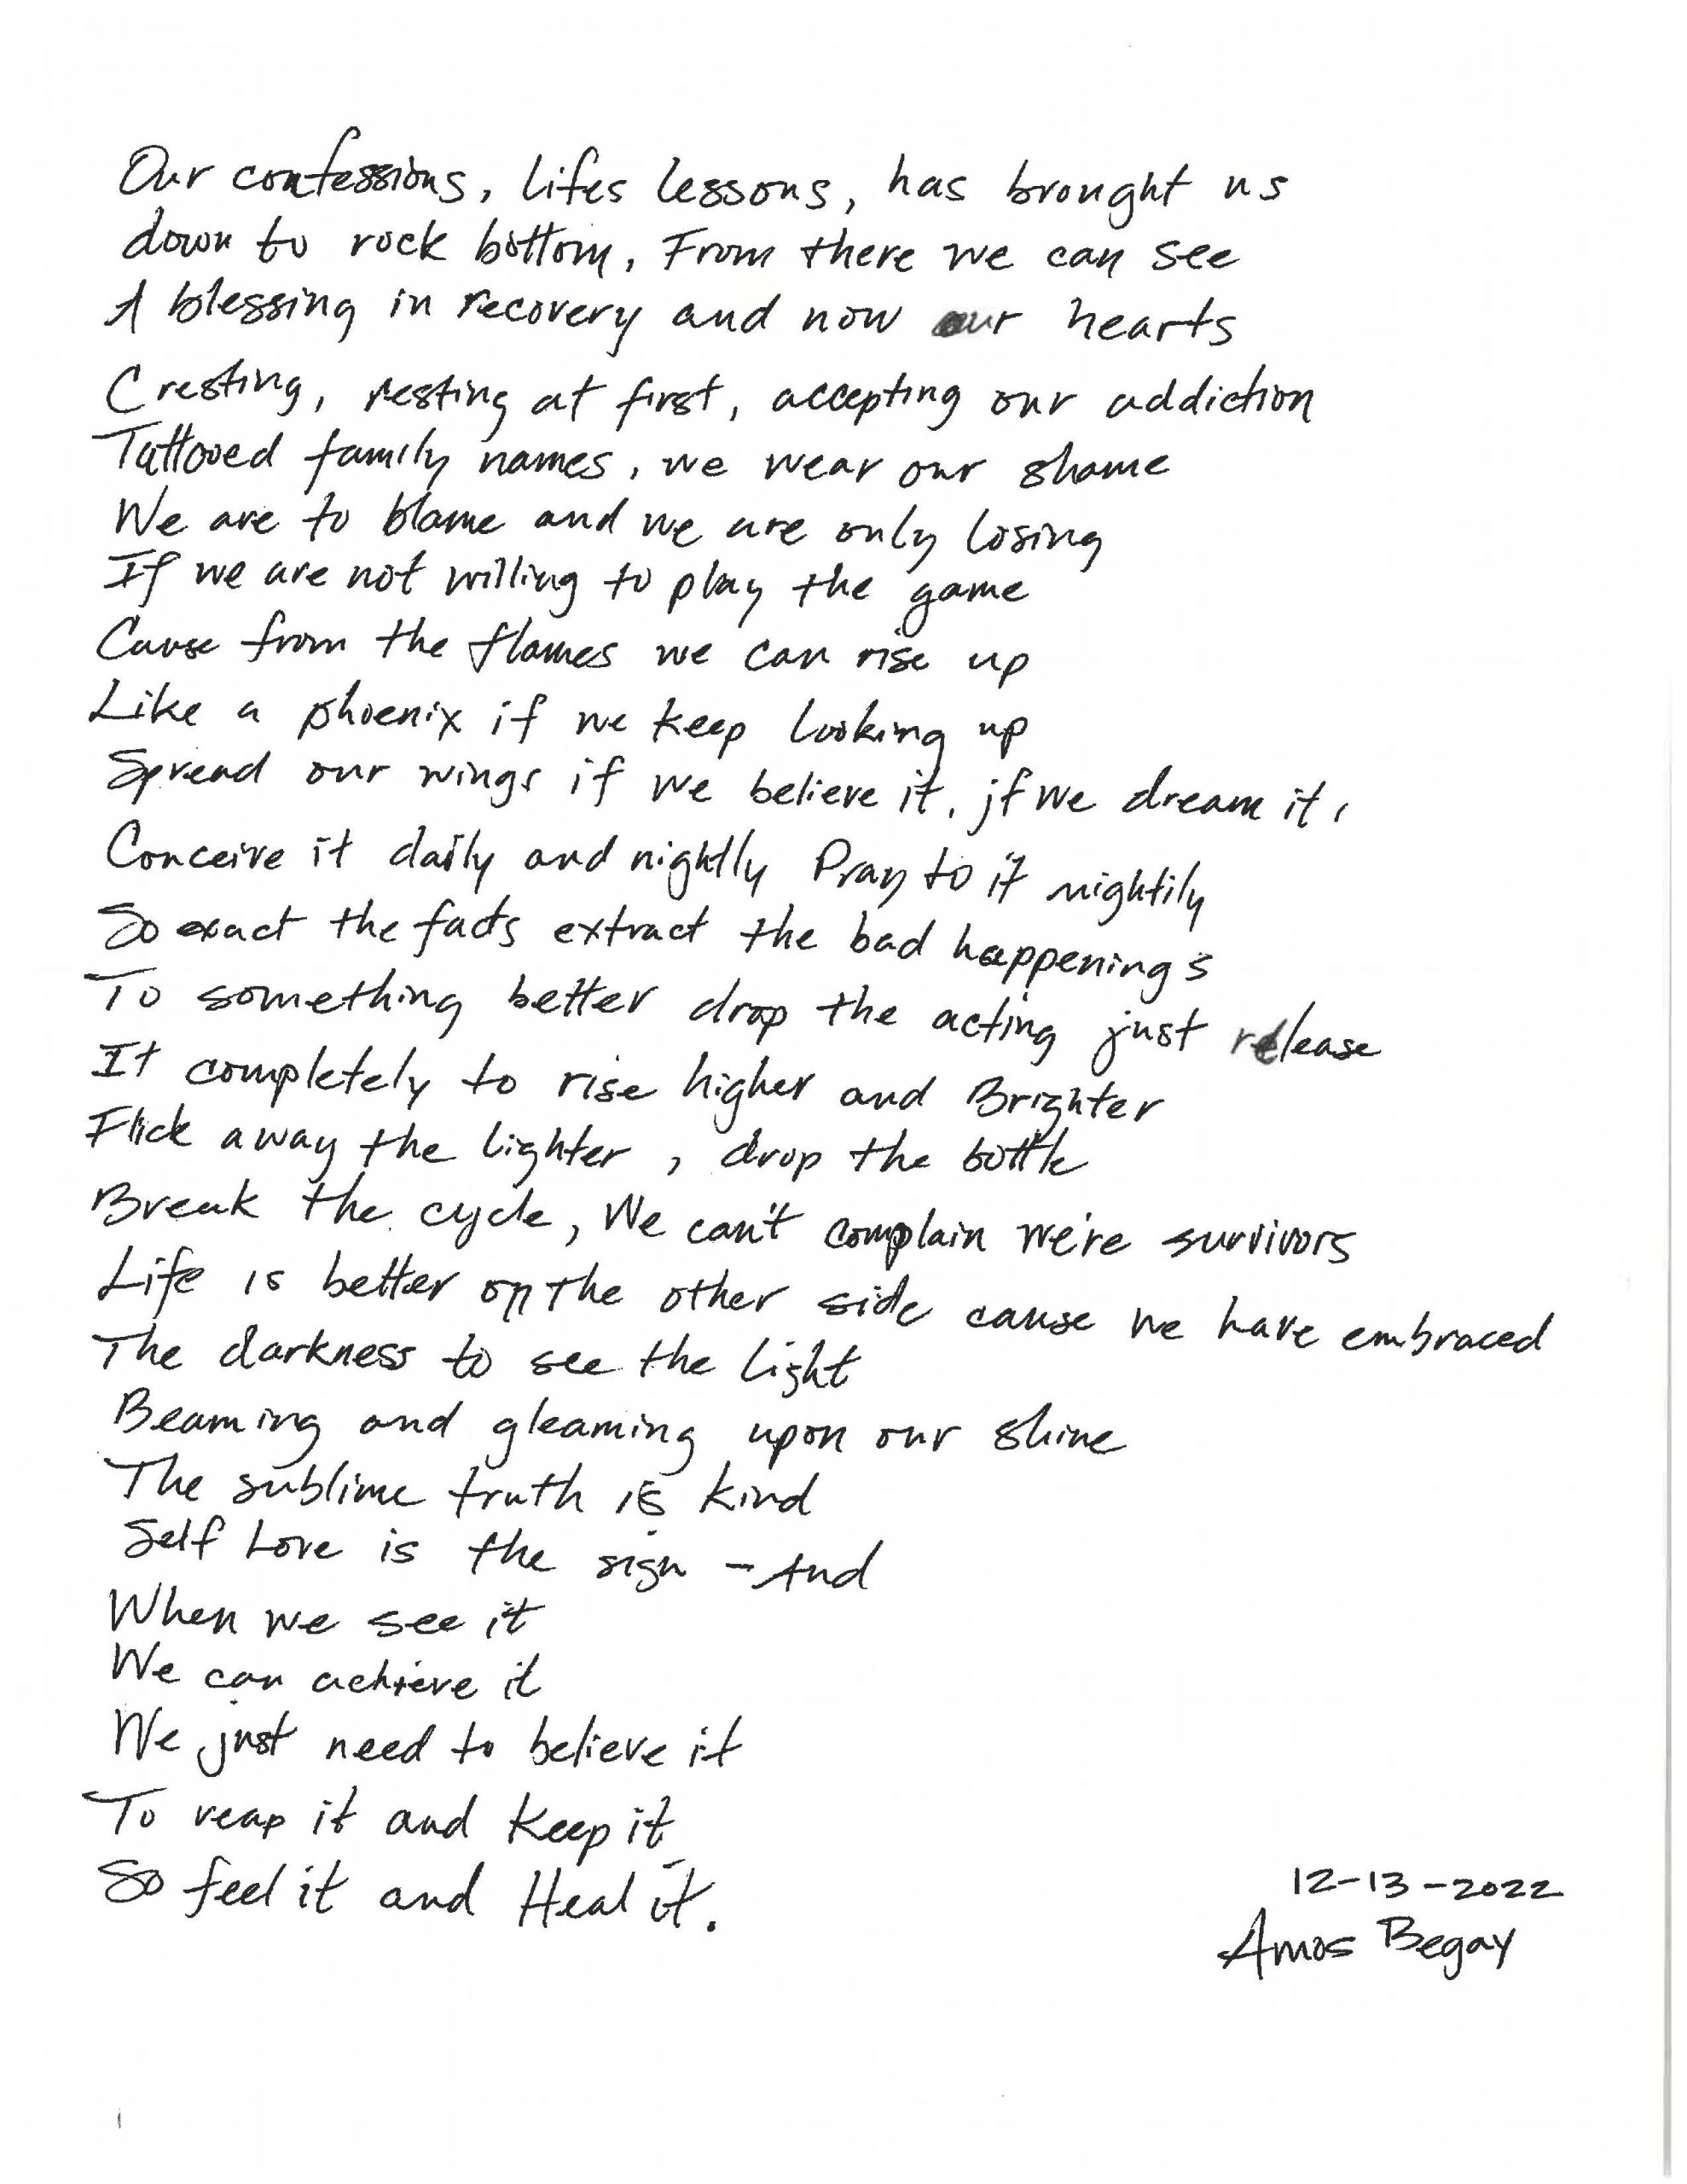 Our confessions, lifes lessons, has brought us
down to rock bottom, From there we can see
A blessing in recovery and now our hearts
Cresting, resting at first, accepting our addiction
Tattooed family names, we wear our shame
We are to blame and we are only losing
If we are not willing to play the game
Cause from the flames we can rise up
Like a phoenix if we keep looking up
Spread our wings if we believe it, if we dream it,
Conceive it daily and nightly Pray to it nightily
So exact the facts extract the bad happenings
To something better drop the acting just release
It completely to rise higher and Brighter
Flick away the lighter, drop the bottle
Break the cycle, We can't complain we're survivors
Life is better on the other side cause we have embraced
The darkness to see the light
Beaming and gleaming upon our shine
The sublime truth is kind
Self Love is the sign - And
When we see it
We can achieve it
We just need to believe it
To reap it and Keep it
So feel it and Heal it.
12-13-2022
Amos Begay